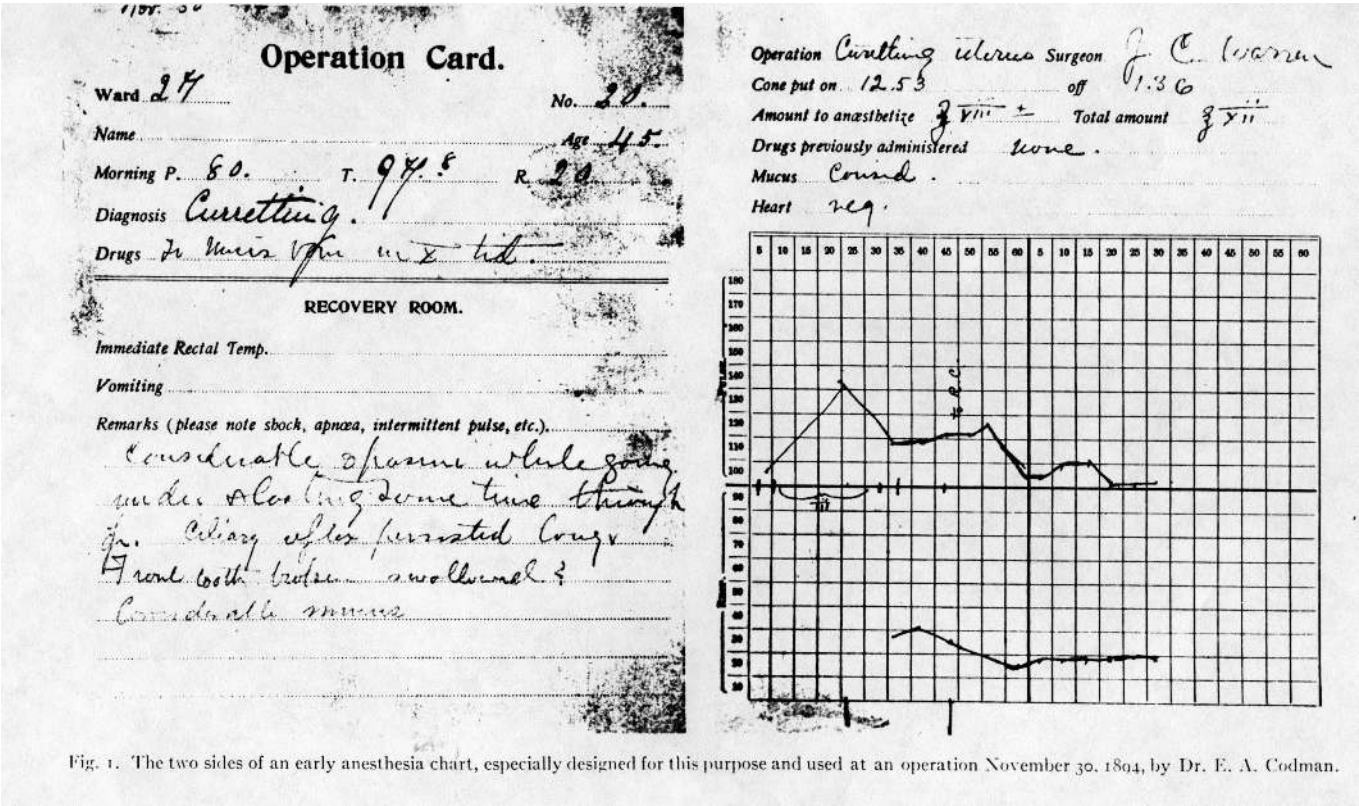 Nov. 30
Operation Card.
Ward 27
No. 20.
Name
Age 45.
Morning P. 80. T. 97.8 R. 20
Diagnosis Curretting.
Drugs
RECOVERY ROOM.
Immediate Rectal Temp.
Vomiting
Remarks (please note shock, apnœa, intermittent pulse, etc.).
Considerable spasm while going
under & lasting some time through
Ciliary reflex persisted long
Front tooth broken swallowed ?
Considerable mucus
Operation Curetting uterus Surgeon J. C. Warren
Cone put on 12.53 off 1.36
Amount to anæsthetize ℥ viii ± Total amount ℥ xii
Drugs previously administered none.
Mucus Consid.
Heart neg.
5 10 15 20 25 30 35 40 45 50 55 60 5 10 15 20 25 30 35 40 45 50 55 60
180
170
160
150
140
130
120
110
100
90
80
70
60
50
40
30
20
10
Pulse.
Resp.
to R.C.
Fig. 1. The two sides of an early anesthesia chart, especially designed for this purpose and used at an operation November 30, 1894, by Dr. E. A. Codman.